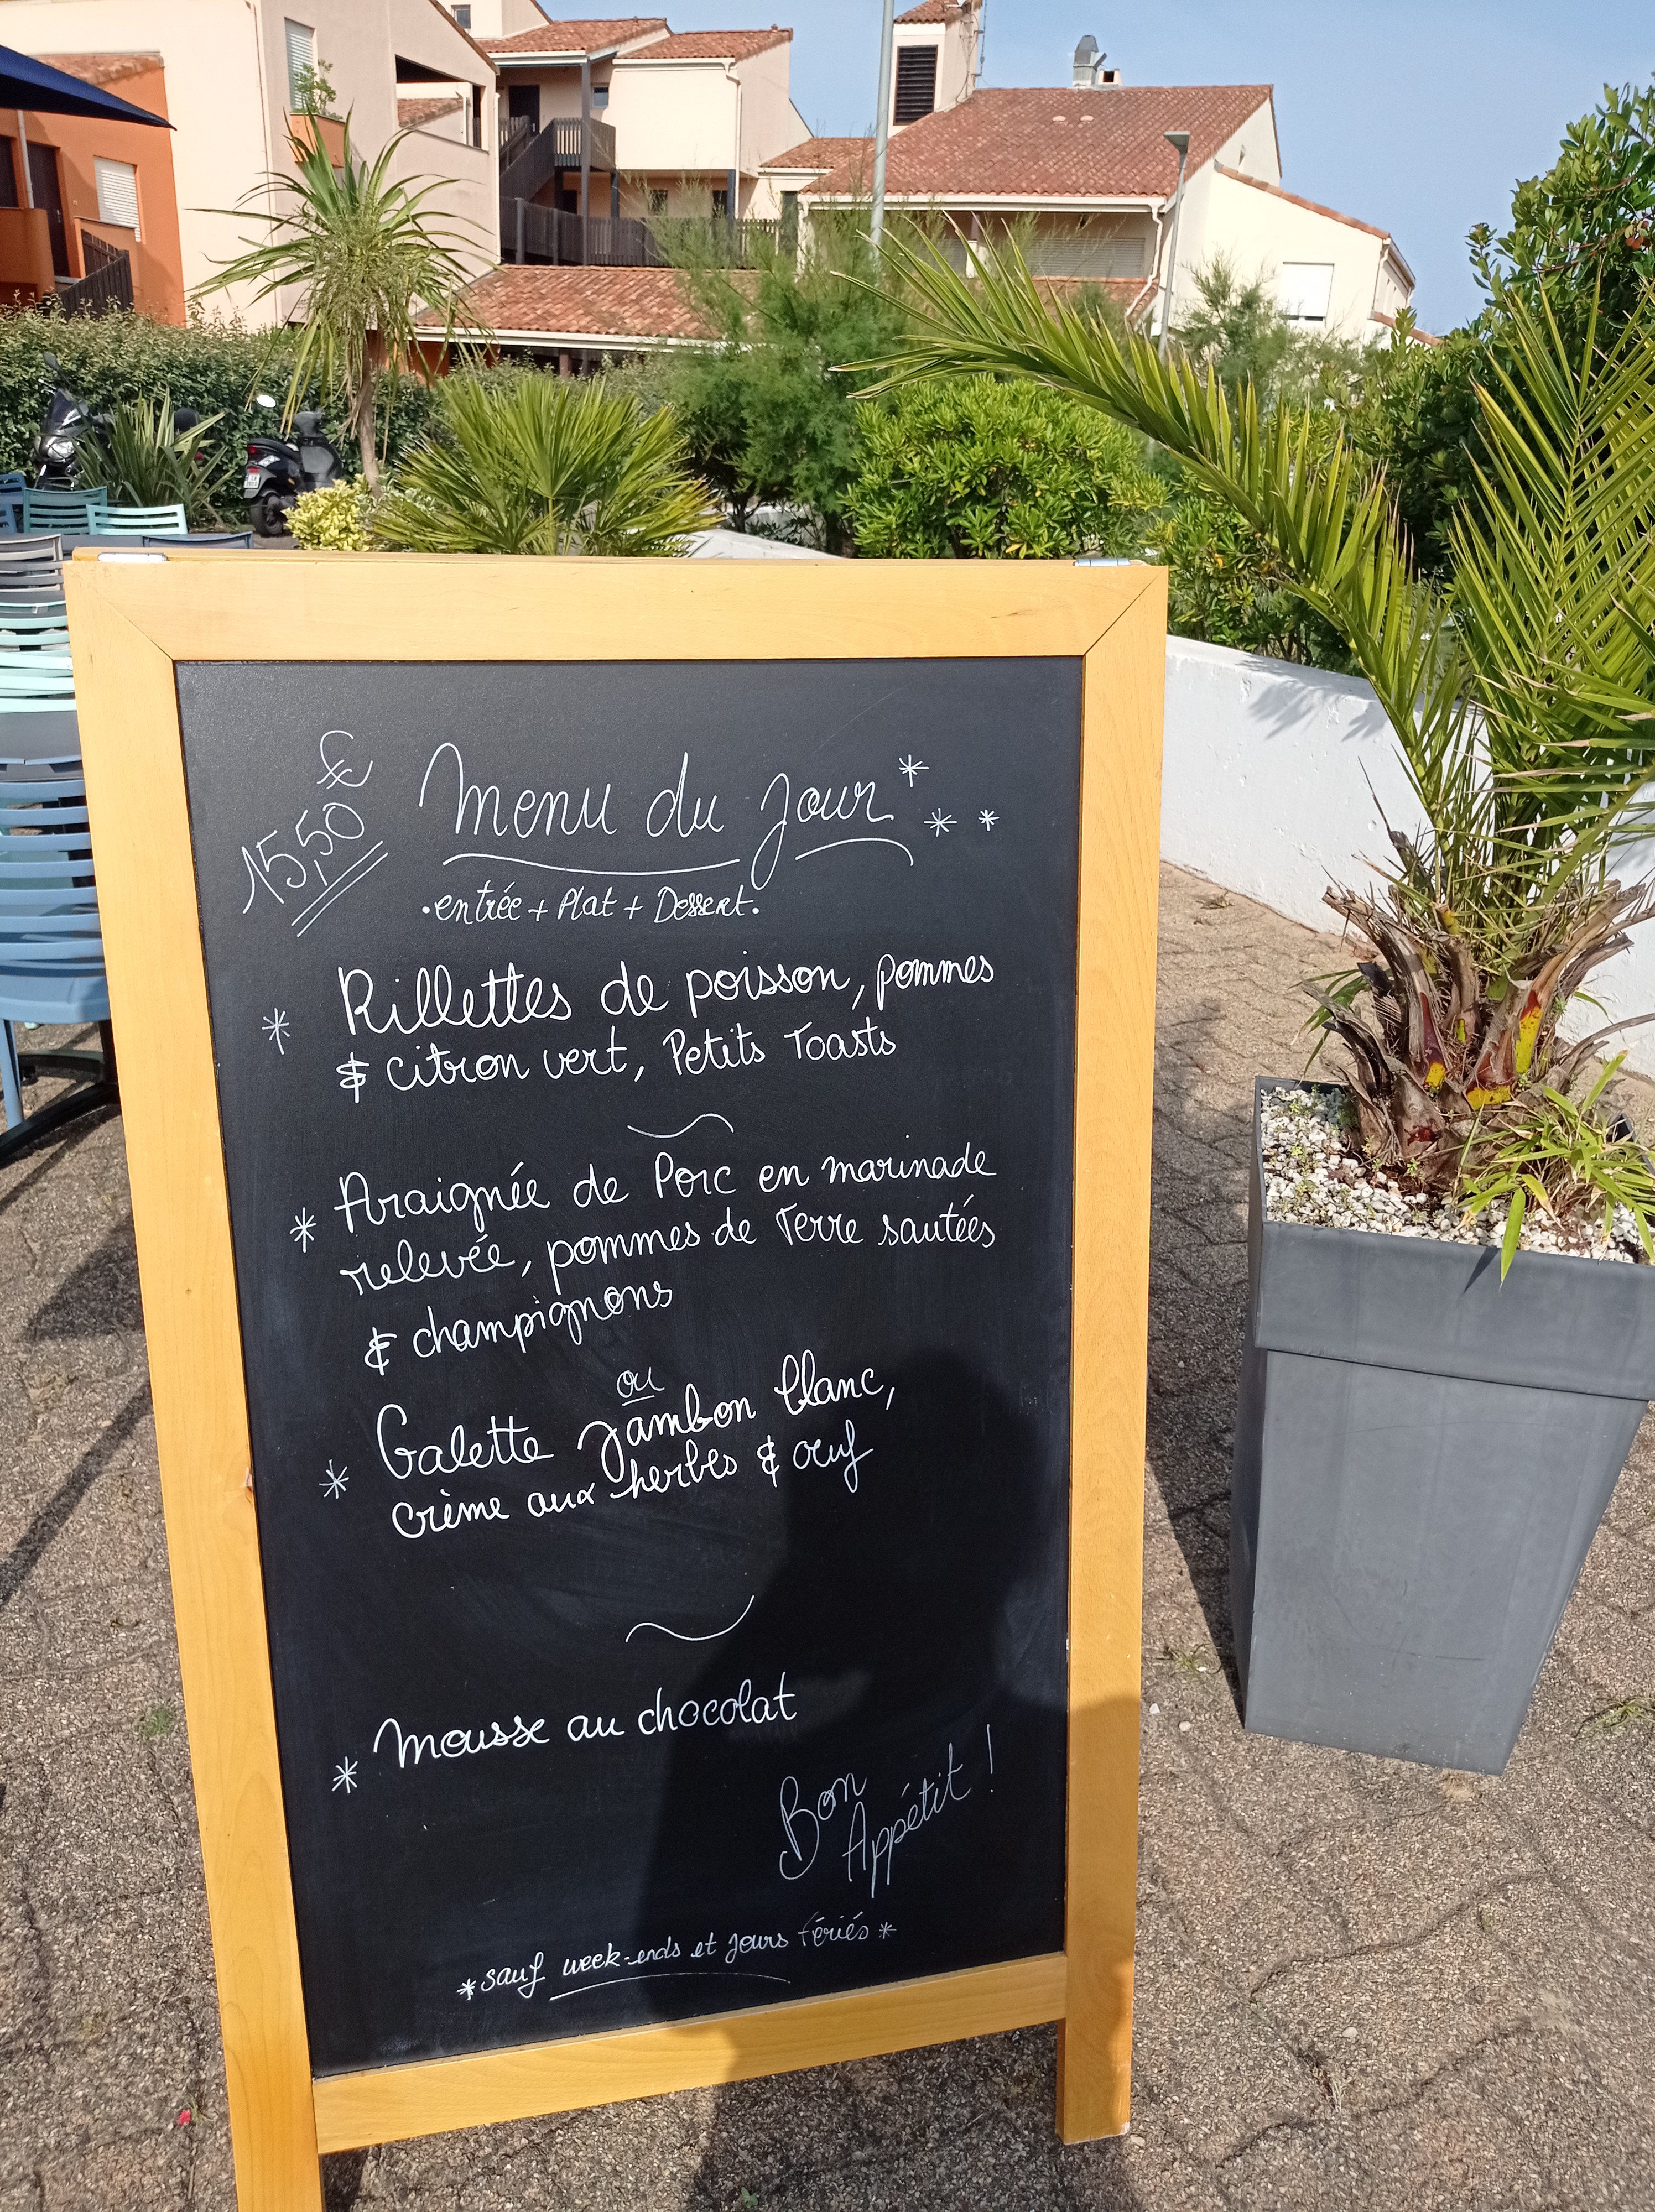 15,50 €
Menu du Jour
.entrée + Plat + Dessert.
* Rillettes de poisson, pommes
& citron vert, Petits Toasts
* Araignée de Porc en marinade
relevée, pommes de Terre sautées
& champignons
ou
* Galette Jambon blanc,
crème aux herbes & œuf
* Mousse au chocolat
Bon
Appétit !
*sauf week-ends et jours fériés*